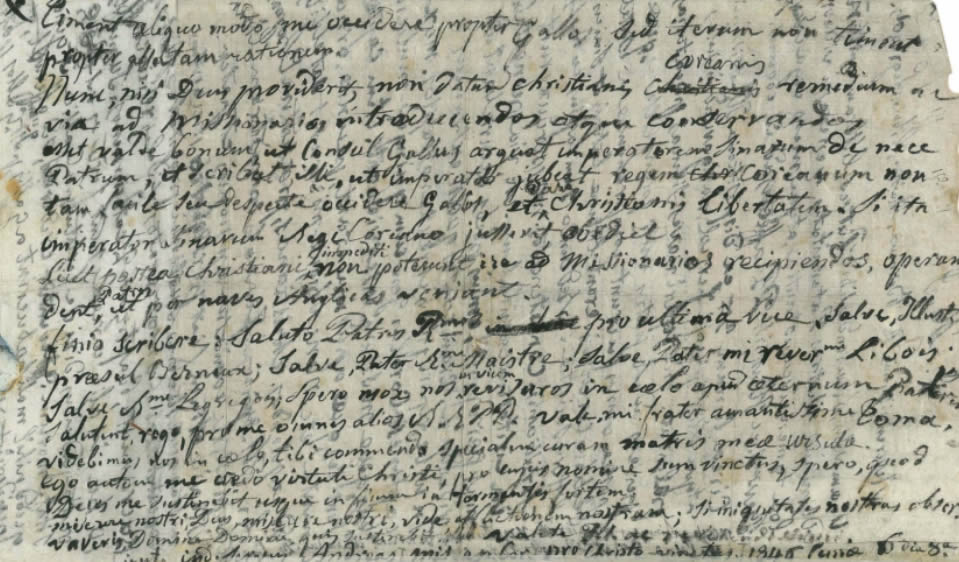 timent aliquo modo me occidere propter Gallos. Sed iterum non timent
propter allatam rationem.
Coreanis
Nunc, nisi Deus providerit non datur christianis remedium ac
via ad missionarios introducendos atque conservandos
esset valde bonum ut Consul Gallus arguat imperatorem Sinarum de nece
Patrum, et scribat illi, ut imperator jubeat regem Coreanum non
tam facile seu despecte occidere Gallos, et dare Christianis libertatem. Si ita
imperator Sinarum Regi Coreano jusserit, obediet
Licet postea Christiani impediti non poterunt ire ad Missionarios recipiendos, operam
dent Patres, ut per naves Anglicas veniant.
finio scribere; Saluto Patres pro ultima vice, Salve, Illust.
praesul Berneux; Salve, Pater Maistre; Salve, Pater mi rever me Libois
Salve Legregeois, Spero mox nos invicem revisuros in coelo apud aeternum Patrem
Salutent, rogo, pro me omnes alios Vale, mi frater amantissime Toma,
videbimus nos in coelo, tibi commendo specialem curam matris meae Ursulae.
ego autem me credo virtuti Christi, pro cujus nomine sum vinctus, spero, quod
Deus me sustinebit usque in finem in tormentis fortem
miserere nostri Deus, miserere nostri, vide afflictionem nostram; si iniquitates nostras obser-
vaveris Domine Domine quis sustinebit valete
Andreas pro Christo 1846 8a